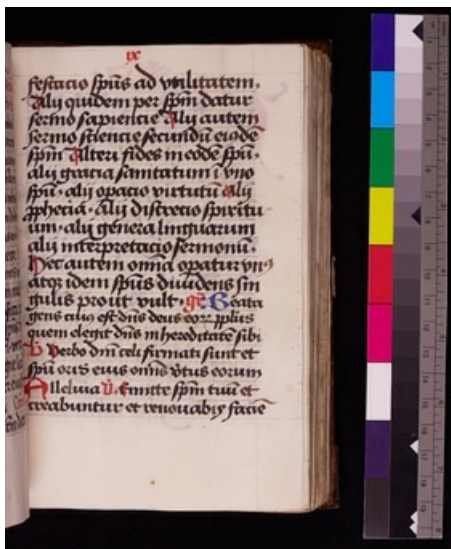 ix
festacio spūs ad vtilitatem.
Alij quidem per spm̄ datur
sermo sapiencie Alij autem
sermo sciencie secundū eūdē
spm̄ Alteri fides in eodē spū.
alij gracia sanitatum ī vno
spū. alij opacio virtutū Alij
ꝓphecia. alij discrecio spiritu
um. alij genera linguarum
alij interpretacio sermonū.
Hec autem omīa opatur vnꝰ
atqꝫ idem spūs diuidens sin
gulis prout vult. gr̄. Beata
gens cuiꝰ est dn̄s deus eoꝝ pplus
quem elegit dn̄s in hereditatē sibi
V̄ Verbo dn̄i celi firmati sunt et
spū oris eius om̄is v̄tus eorum
Alleluia V̄. Emitte spm̄ tuū et
creabuntur et renouabis faciē